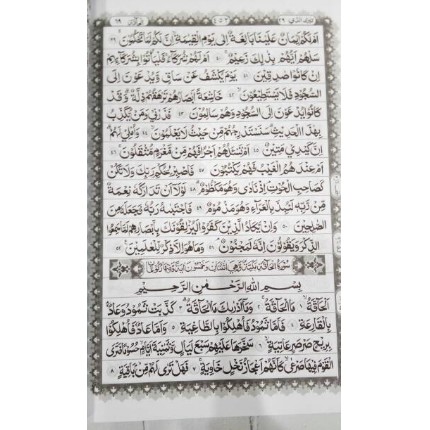 اَمْ لَكُمْ اَيْمَانٌ عَلَيْنَا بَالِغَةٌ اِلٰى يَوْمِ الْقِيٰمَةِ اِنَّ لَكُمْ لَمَا تَحْكُمُوْنَ ۳۹
سَلْهُمْ اَيُّهُمْ بِذٰلِكَ زَعِيْمٌ اَمْ لَهُمْ شُرَكَآءُ فَلْيَاْتُوْا بِشُرَكَآئِهِمْ
اِنْ كَانُوْا صٰدِقِيْنَ يَوْمَ يُكْشَفُ عَنْ سَاقٍ وَّيُدْعَوْنَ اِلَى
السُّجُوْدِ فَلَا يَسْتَطِيْعُوْنَ ۴۲ خَاشِعَةً اَبْصَارُهُمْ تَرْهَقُهُمْ ذِلَّةٌ وَقَدْ
كَانُوْا يُدْعَوْنَ اِلَى السُّجُوْدِ وَهُمْ سٰلِمُوْنَ ۴۳ فَذَرْنِيْ وَمَنْ يُّكَذِّبُ
بِهٰذَا الْحَدِيْثِ سَنَسْتَدْرِجُهُمْ مِّنْ حَيْثُ لَا يَعْلَمُوْنَ ۴۴ وَاُمْلِيْ لَهُمْ
اِنَّ كَيْدِيْ مَتِيْنٌ ۴۵ اَمْ تَسْئَلُهُمْ اَجْرًا فَهُمْ مِّنْ مَّغْرَمٍ مُّثْقَلُوْنَ ۴۶
اَمْ عِنْدَهُمُ الْغَيْبُ فَهُمْ يَكْتُبُوْنَ ۴۷ فَاصْبِرْ لِحُكْمِ رَبِّكَ وَلَا تَكُنْ
كَصَاحِبِ الْحُوْتِ اِذْ نَادٰى وَهُوَ مَكْظُوْمٌ ۴۸ لَوْلَآ اَنْ تَدٰرَكَهٗ نِعْمَةٌ
مِّنْ رَّبِّهٖ لَنُبِذَ بِالْعَرَآءِ وَهُوَ مَذْمُوْمٌ ۴۹ فَاجْتَبٰهُ رَبُّهٗ فَجَعَلَهٗ مِنَ
الصّٰلِحِيْنَ ۵۰ وَاِنْ يَّكَادُ الَّذِيْنَ كَفَرُوْا لَيُزْلِقُوْنَكَ بِاَبْصَارِهِمْ لَمَّا سَمِعُوا
الذِّكْرَ وَيَقُوْلُوْنَ اِنَّهٗ لَمَجْنُوْنٌ ۵۱ وَمَا هُوَ اِلَّا ذِكْرٌ لِّلْعٰلَمِيْنَ ۵۲
بِسْمِ اللّٰهِ الرَّحْمٰنِ الرَّحِيْمِ
اَلْحَآقَّةُ ۱ مَا الْحَآقَّةُ ۲ وَمَآ اَدْرٰىكَ مَا الْحَآقَّةُ ۳ كَذَّبَتْ ثَمُوْدُ وَعَادٌ
بِالْقَارِعَةِ ۴ فَاَمَّا ثَمُوْدُ فَاُهْلِكُوْا بِالطَّاغِيَةِ ۵ وَاَمَّا عَادٌ فَاُهْلِكُوْا
بِرِيْحٍ صَرْصَرٍ عَاتِيَةٍ ۶ سَخَّرَهَا عَلَيْهِمْ سَبْعَ لَيَالٍ وَّثَمٰنِيَةَ اَيَّامٍ حُسُوْمًا فَتَرَى
الْقَوْمَ فِيْهَا صَرْعٰى كَاَنَّهُمْ اَعْجَازُ نَخْلٍ خَاوِيَةٍ ۷ فَهَلْ تَرٰى لَهُمْ مِّنْ بَاقِيَةٍ ۸